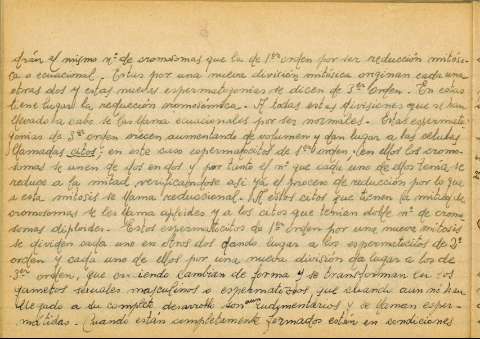 drán el mismo nº de cromosomas que la de 1er orden por ser reducción mitósi-
ca o ecuacional. Estas por una nueva división mitósica originan cada una
otras dos y estas nuevas espermatogonias se dicen de 3er orden. En estas
tiene lugar la reducción cromosómica. A todas estas divisiones que se han
llevado a cabo se les llama ecuacionales por ser normales. Estas espermato-
gonias de 3er orden crecen aumentando de volumen y dan lugar a las células
llamadas citos; en este caso espermatocitos de 1er orden; en ellos los cromo-
somas se unen de dos en dos y por tanto el nº que cada uno de ellos tenía se
reduce a la mitad verificándose así ya el proceso de reducción por lo que
a esta mitosis se llama reduccional. A estos citos que tienen la mitad de
cromosomas se les llama aploides y a los citos que tenían doble nº de cromo-
somas diploides. Estos espermatocitos de 1er orden por una nueva mitosis
se dividen cada uno en otros dos dando lugar a los espermatocitos de 2º
orden y cada uno de ellos por una nueva división da lugar a los de
3er orden, que creciendo cambian de forma y se transforman en los
gametos sexuales masculinos o espermatozoos, que cuando aun no han
llegado a su completo desarrollo son aun rudimentarios y se llaman esper-
mátidas. Cuando están completamente formados están en condiciones